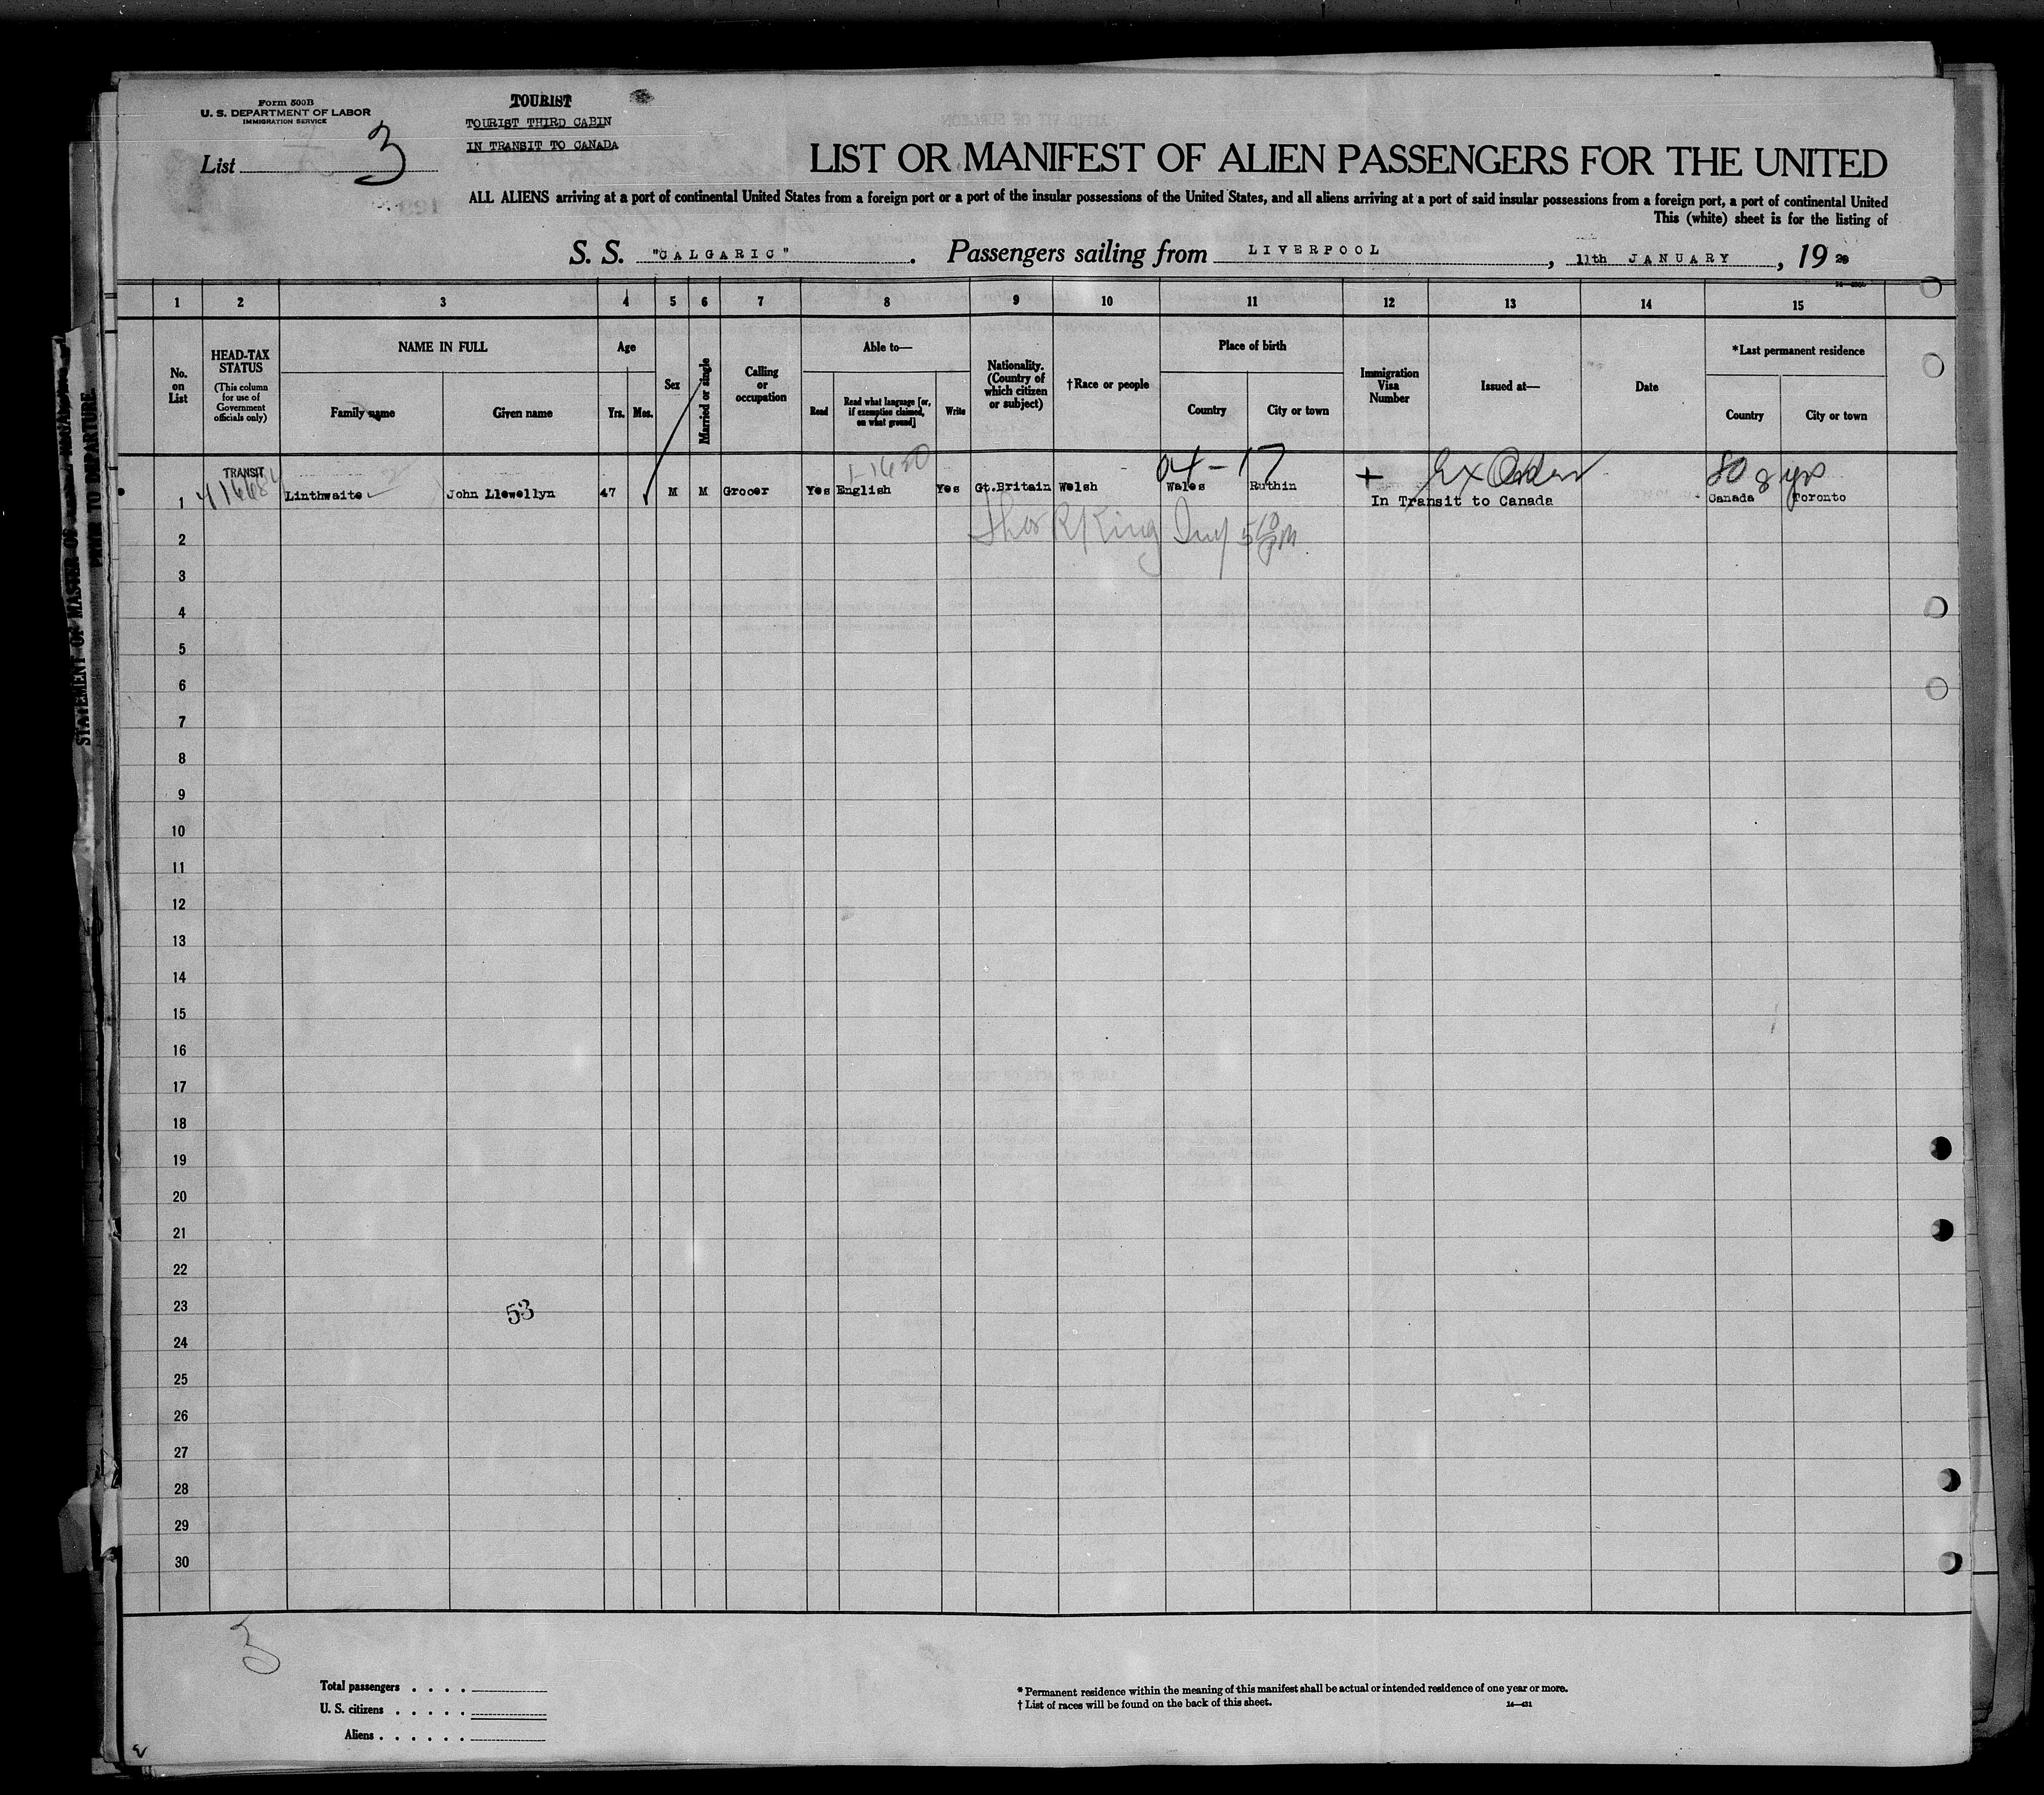 Form 500B
U. S. DEPARTMENT OF LABOR
IMMIGRATION SERVICE
TOURIST
TOURIST THIRD CABIN
IN TRANSIT TO CANADA
List 3
LIST OR MANIFEST OF ALIEN PASSENGERS FOR THE UNITED
ALL ALIENS arriving at a port of continental United States from a foreign port or a port of the insular possessions of the United States, and all aliens arriving at a port of said insular possessions from a foreign port, a port of continental United
This (white) sheet is for the listing of
S. S. "CALGARIC" . Passengers sailing from LIVERPOOL , 11th JANUARY , 19
1 2 3 4 5 6 7 8 9 10 11 12 13 14 15
No. on List
HEAD-TAX STATUS
(This column for use of Government officials only)
NAME IN FULL
Family name
Given name
Age
Yrs.
Mos.
Sex
Married or single
Calling or occupation
Able to—
Read
Read what language [or, if exemption claimed, on what ground]
Write
Nationality. (Country of which citizen or subject)
†Race or people
Place of birth
Country
City or town
Immigration Visa Number
Issued at—
Date
*Last permanent residence
Country
City or town
04-17 + Ex Order 80 8 yrs
TRANSIT
1 Linthwaite John Llewellyn 47 M M Grocer Yes English Yes Gt.Britain Welsh Wales Ruthin In Transit to Canada Canada Toronto
2
3
4
5
6
7
8
9
10
11
12
13
14
15
16
17
18
19
20
21
22
23
53
24
25
26
27
28
29
30
3
Total passengers . . . .
U. S. citizens . . . . .
Aliens . . . . . .
* Permanent residence within the meaning of this manifest shall be actual or intended residence of one year or more.
† List of races will be found on the back of this sheet.
14—431
STATEMENT OF MASTER OF
PRIOR TO DEPARTURE.